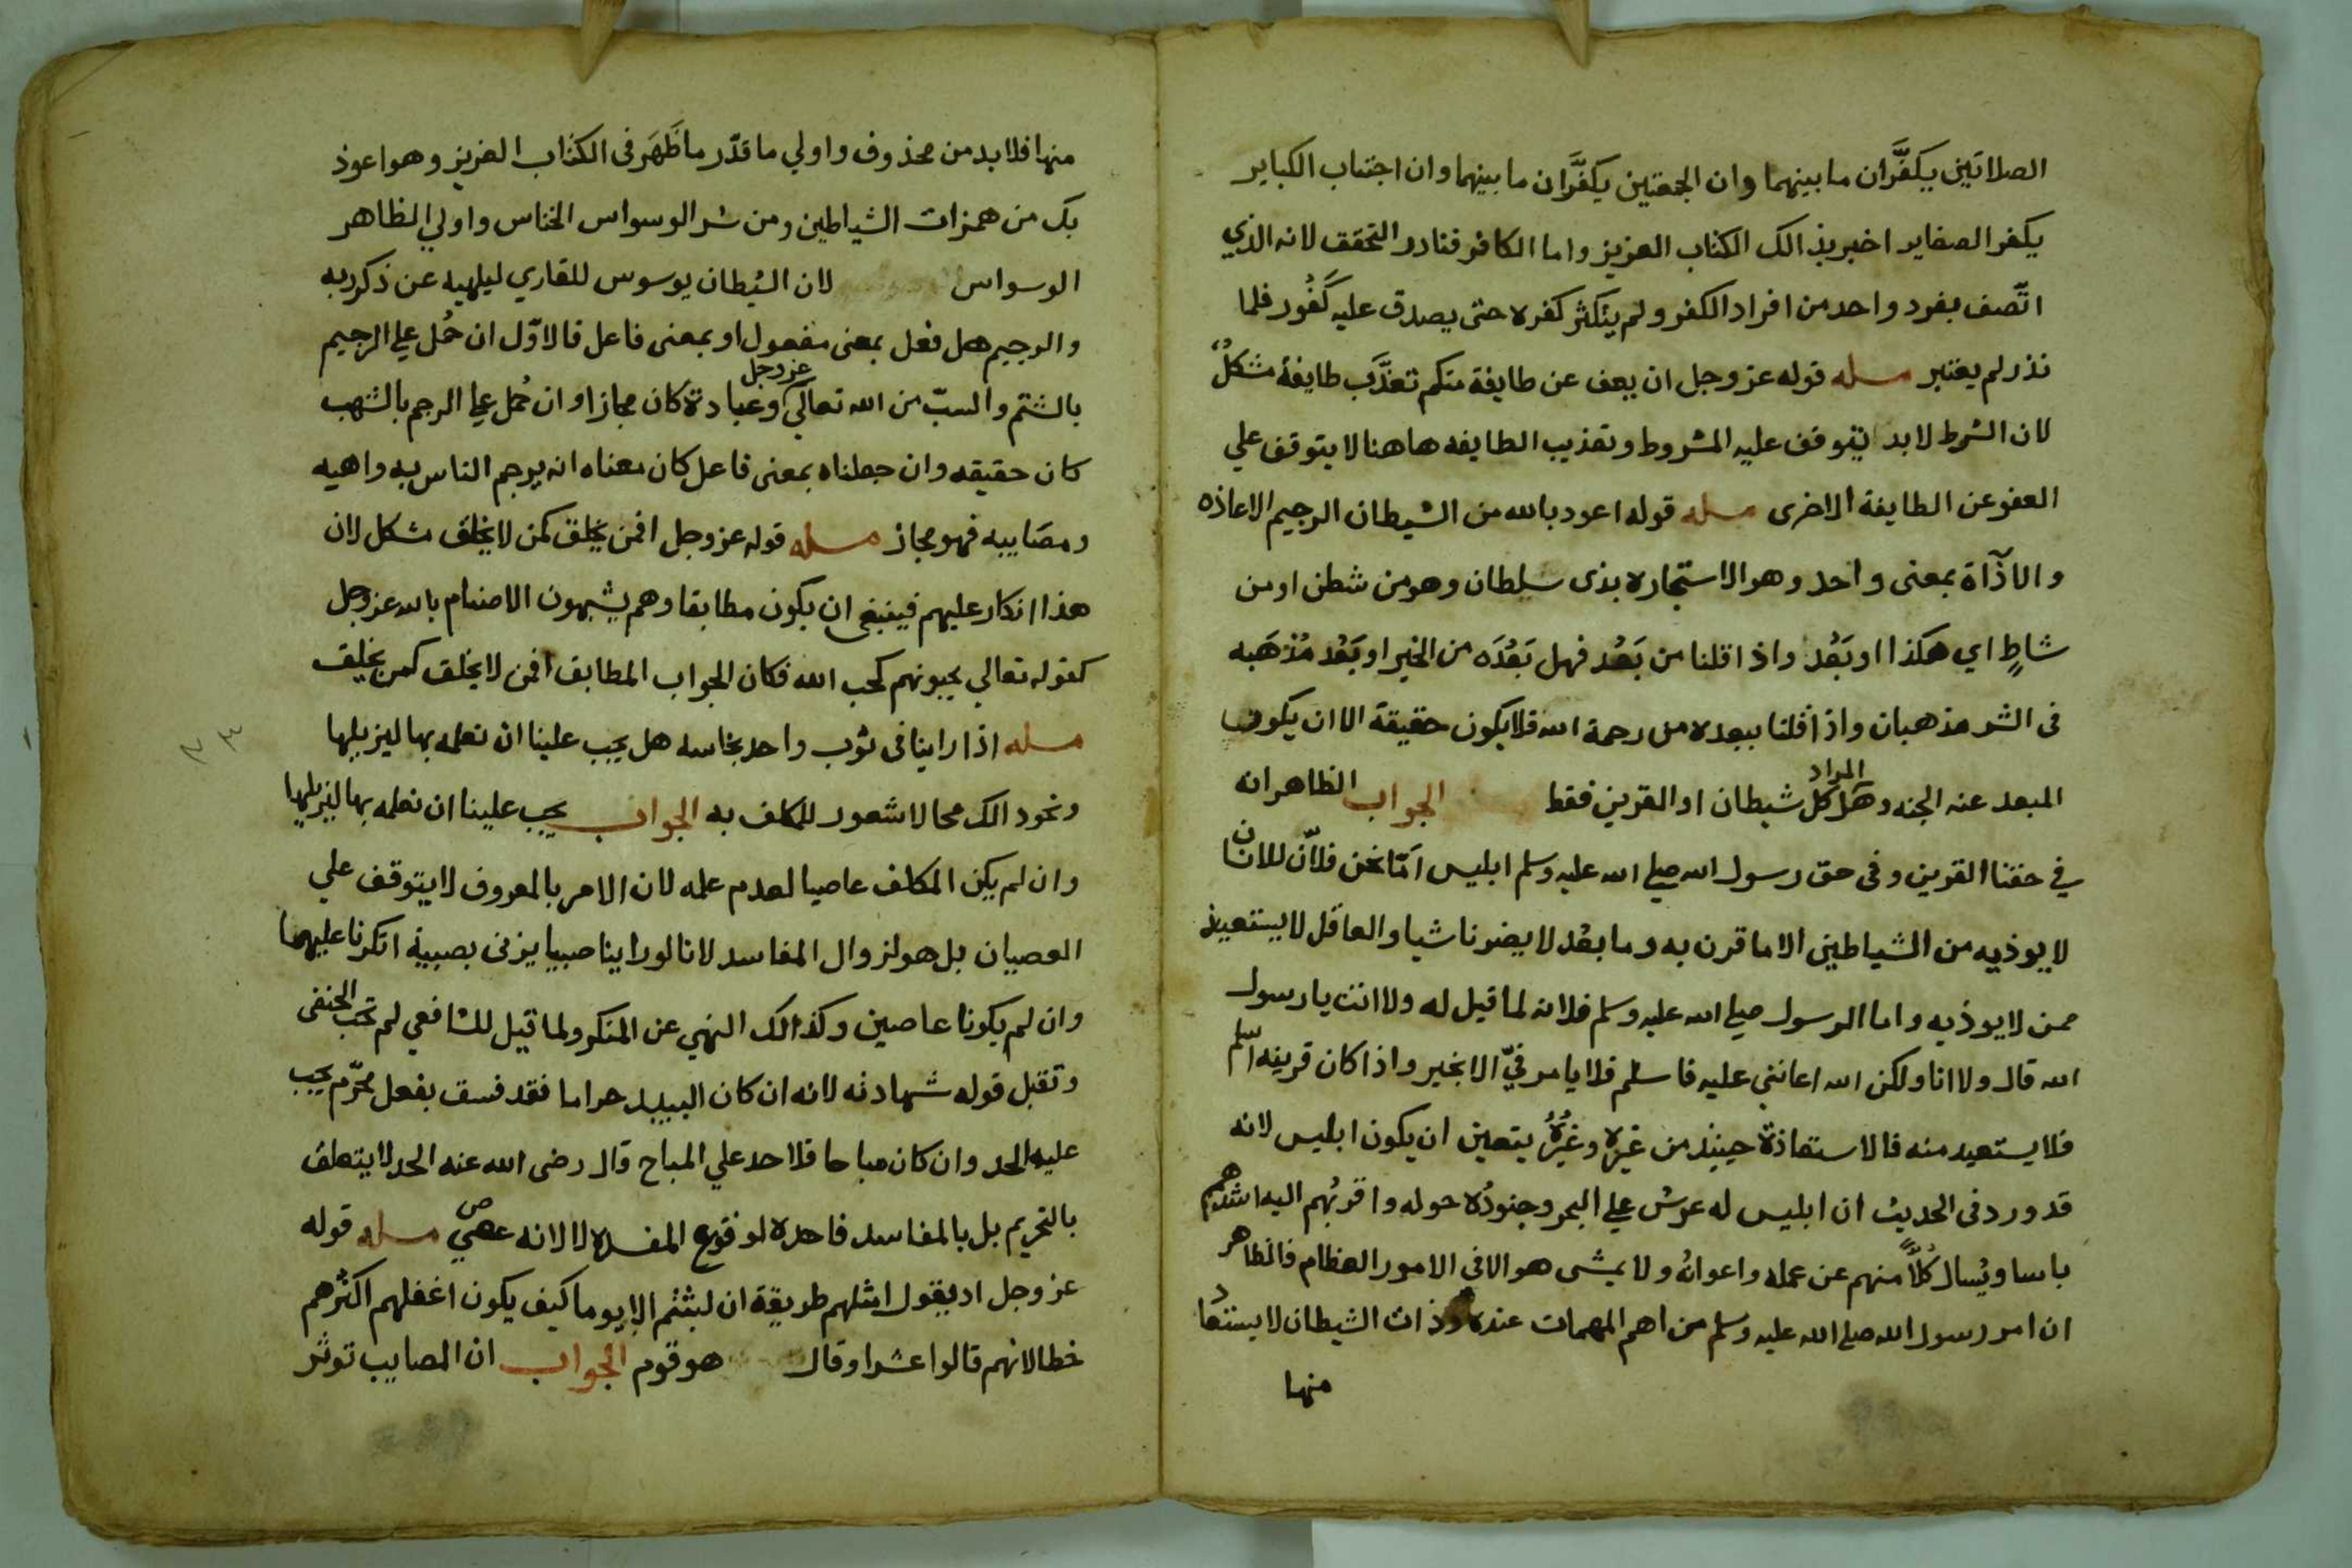 الصلاتين يكفَّران ما بينهما وان الجمعتين يكفَّران ما بينهما وان اجتناب الكباير
يكفر الصغاير اخبر بذالك الكتاب العزيز واما الكافر فنادر التحقق لانه الذي
اتّصف بفرد واحد من افراد الكفر ولم يتكثر كفره حتى يصدق عليه كَفُور فلما
نذر لم يعتبر مسله قوله عز وجل ان يعف عن طايفة منكم تعذَّب طايفة مشكلٌ
لان الشرط لابد يتوقف عليه المشروط وتعذيب الطايفه هاهنا لا يتوقف علي
العفو عن الطايفة الاخرى مسله قوله اعود بالله من الشيطان الرجيم الاعاذه
والاذآة بمعنى واحد وهو الاستجاره بذى سلطان وهو من شطن او من
شاطٍ اي هكذا او بَعُد واذا قلنا من بَعُد فهل بَعُدَه من الخير او بَعُد مُذهَبه
فى الشر مذهبان واذا قلنا ببعده من رحمة الله فلا يكون حقيقة الا ان يكون
المبعد عنه الجنه وهل المراد كل شيطان او القرين فقط الجواب الظاهر انه
في حقنا القرين وفى حق رسول الله صلي الله عليه وسلم ابليس امّا نحن فلانّ للانسان
لا يوذيه من الشياطين الا ما قرن به وما بعُد لا يضرنا شيا والعاقل لا يستعيذ
ممن لا يوذيه واما الرسول صلي الله عليه وسلم فلانه لما قيل له ولا انت يا رسول
الله قال ولا انا ولكن الله اعانني عليه فاسلم فلا يامر فيّ الا بخير واذا كان قرينه اسلم
فلا يستعيد منه فالاستعاذة حينيذ من غيره وغيرُهُ يتعين ان يكون ابليس لانه
قد ورد فى الحديث ان ابليس له عرش علي البحر وجنودُه حوله واقربُهم اليه اشدهم
باسا ويُسال كُلاًّ منهم عن عمله واعوانُه ولا يمشى هو الا فى الامور العظام فالظاهر
ان امر رسول الله صلي الله عليه وسلم من اهم المهمات عنده وذات الشيطان لا يستعاد
منها
منها فلا بد من محذوف واولي ما قدّر ما ظَهَر فى الكتاب العزيز وهو اعوذ
بك من همزات الشياطين ومن شر الوسواس الخناس واولي الظاهر
الوسواس لان الشيطان يوسوس للقاري ليلهيه عن ذكر ربه
والرجيم هل فعل بمعنى مفعول او بمعنى فاعل فالاوّل ان حُمل علي الرجيم
بالشتم والسبّ من الله تعالي عز وجل وعبادة كان مجازا وان حُمل علي الرجم بالشهب
كان حقيقه وان جعلناه بمعنى فاعل كان معناه انه يرجم الناس به واهيه
ومصَاييبه فهو مجاز مسله قوله عز وجل افمن يخلق كمن لا يخلق مشكل لان
هذا انكار عليهم فينبغى ان يكون مطابقا وهم يشبهون الاصنام بالله عز وجل
كقوله تعالي يحبونهم كحب الله فكان الجواب المطابق افمن لا يخلق كمن يخلق
مسله اذا راينا فى ثوب واحد نجاسه هل يجب علينا ان نعلمه بها ليزيلها
ونحو دالك محا لا شعور للمكلف به الجواب يجب علينا ان نعلمه بها ليزيلها
وان لم يكن المكلف عاصيا لعدم علمه لان الامر بالمعروف لا يتوقف علي
العصيان بل هو لزوال المفاسد لانا لو راينا صبيا يزنى بصبية انكرنا عليهما
وان لم يكونا عاصين وكذالك النهي عن المنكر ولما قيل للشافعي لم تحب الحنفى
وتقبل قوله شهادته لانه ان كان النبيد حراما فقد فسق بفعل محرّم يجب
عليه الحد وان كان مباحا فلا حد علي المباح قال رضى الله عنه الحد لا يتعلق
بالتحريم بل بالمفاسد فاحده لوقوع المفسده لا لانه عصي مسله قوله
عز وجل اد يقول امثلهم طريقة ان لبثتم الا يوما كيف يكون اغفلهم اكثرهم
خطا لانهم قالوا عشرا وقال هو قوم الجواب ان المصايب توثر